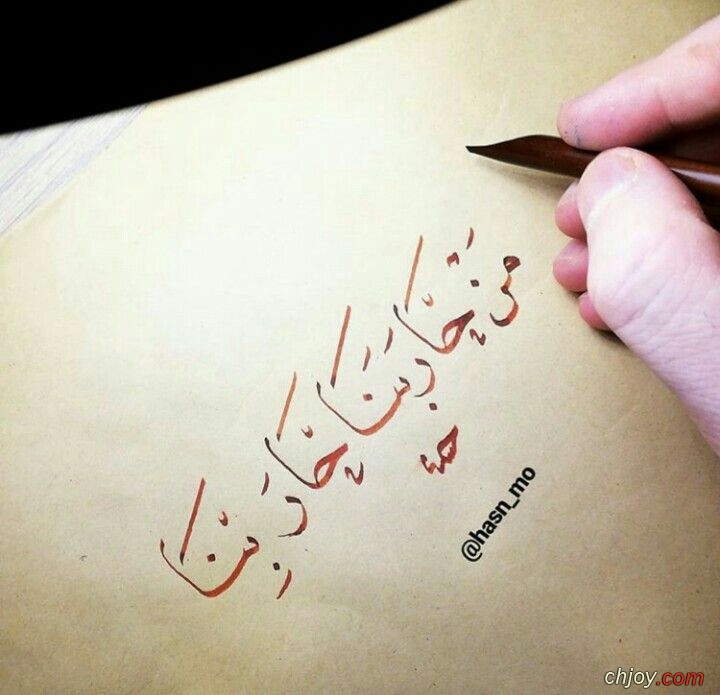 من حاربنا حاربنا
@hasn_mo
chjoy.com